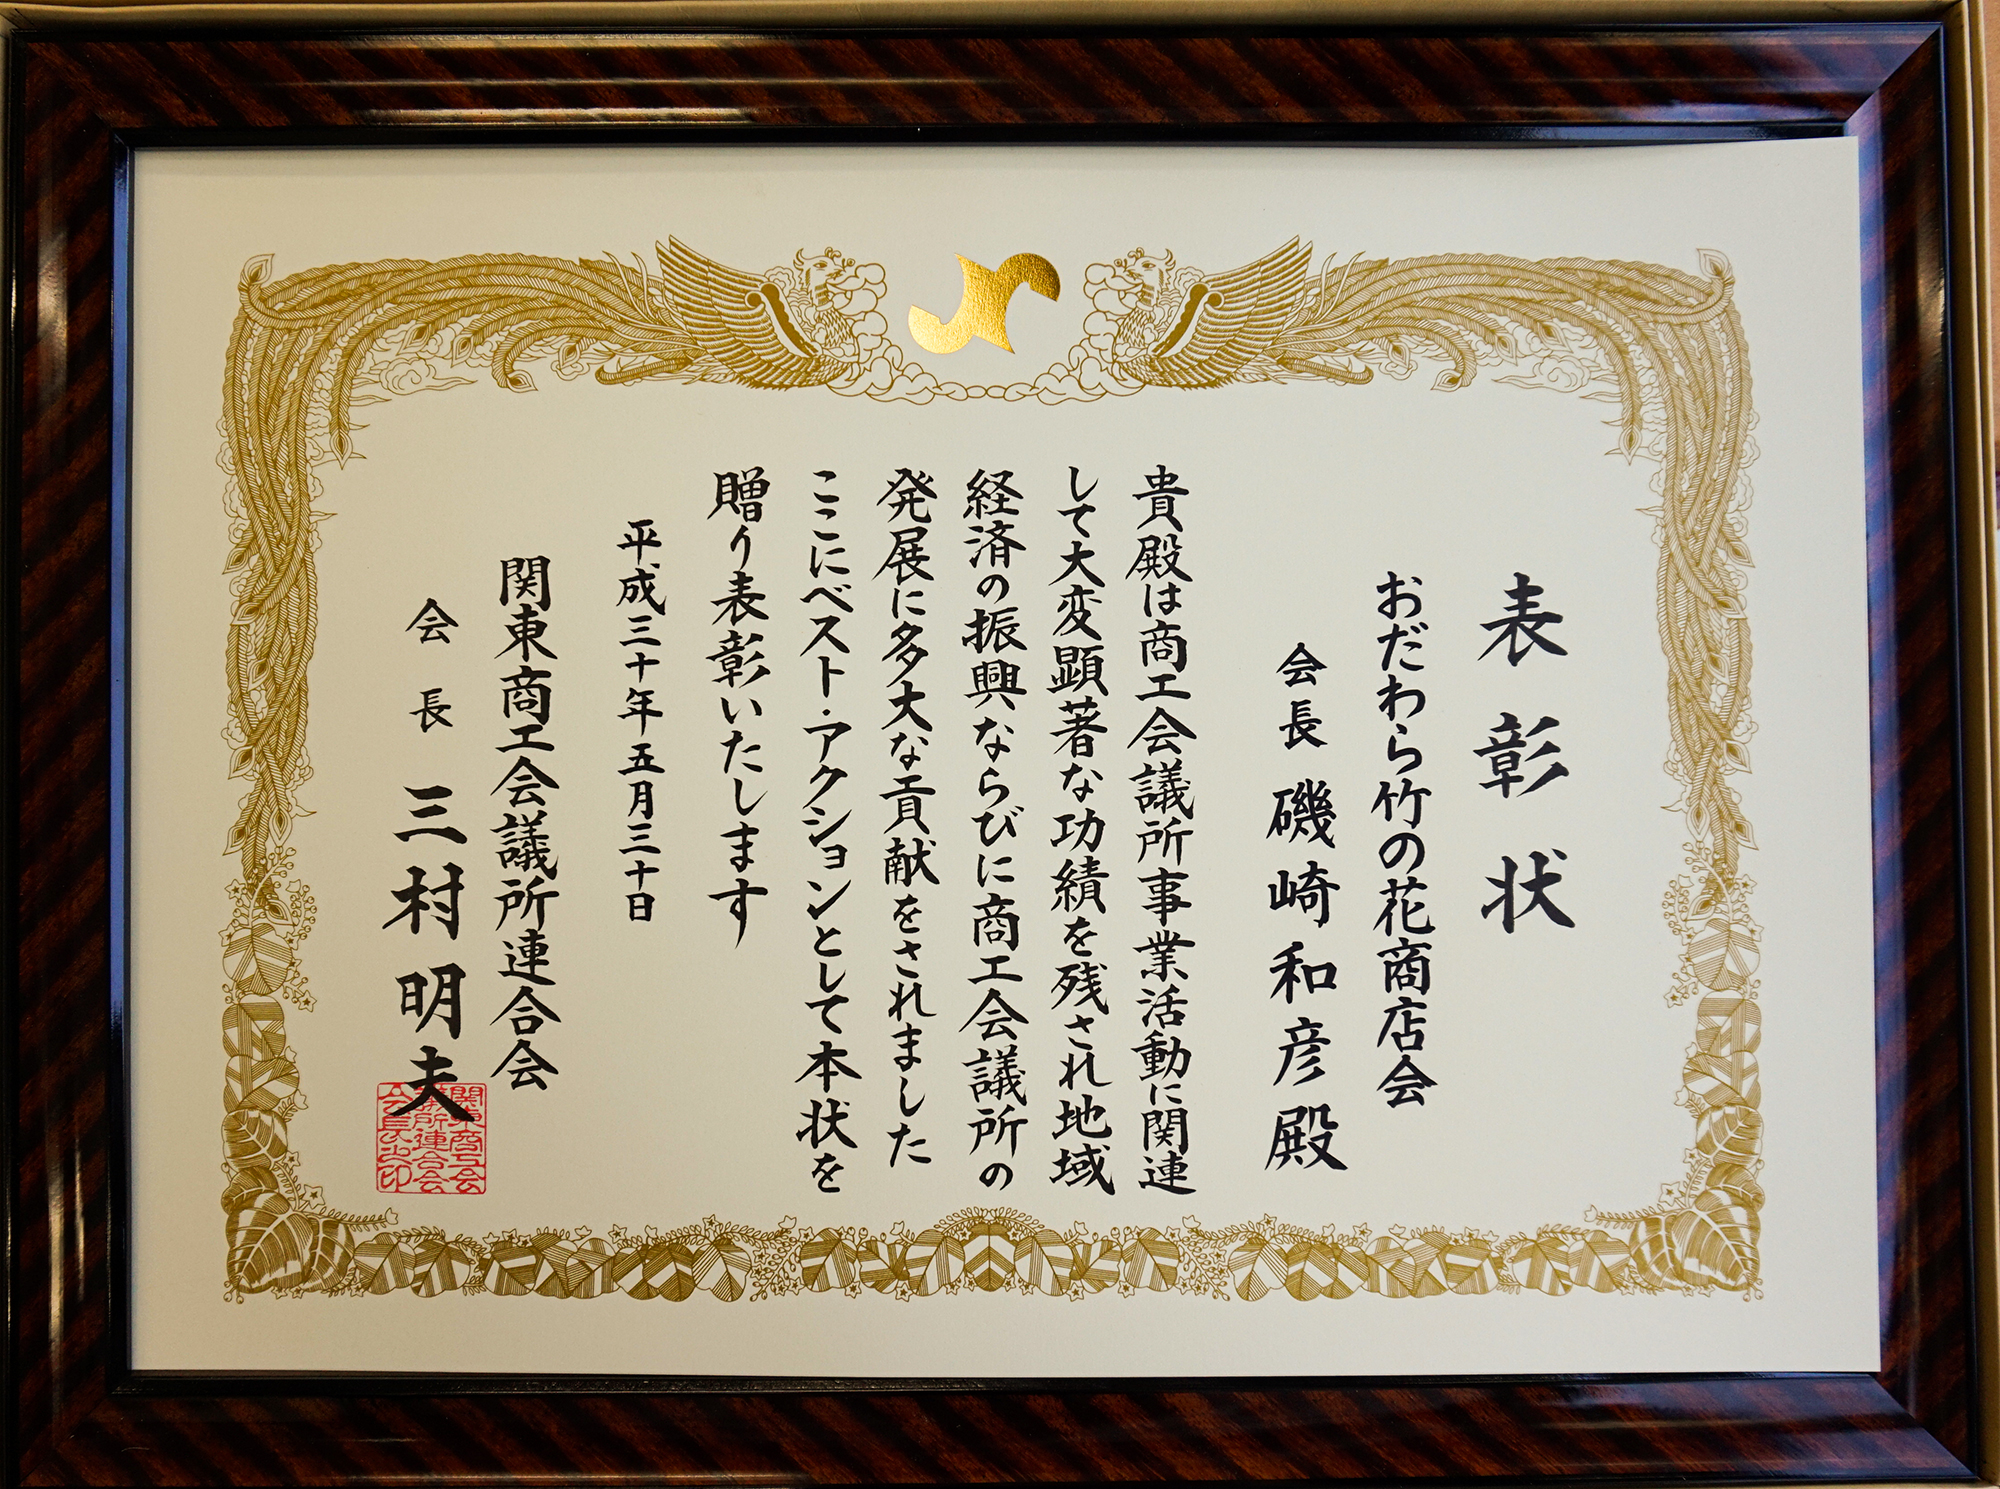 表彰状
おだわら竹の花商店会
会長 磯崎和彦殿
貴殿は商工会議所事業活動に関連
して大変顕著な功績を残され地域
経済の振興ならびに商工会議所の
発展に多大な貢献をされました
ここにベスト・アクションとして本状を
贈り表彰いたします
平成三十年五月三十日
関東商工会議所連合会
会長 三村明夫
関東商工会
議所連合会
会長之印